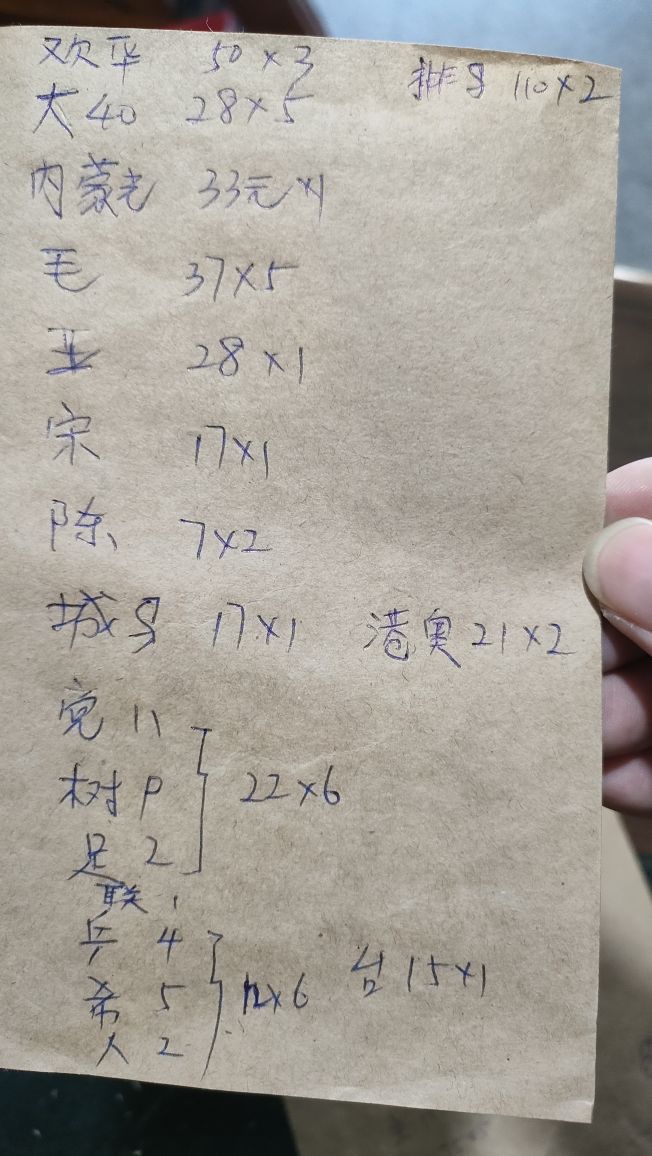 欢平 50×3
排号 110×2
大40 28×5
内蒙老 33元×1
毛 37×5
亚 28×1
宋 17×1
陈 7×2
城号 17×1 港奥 21×2
宽 11
树 P 22×6
足 2
联 1
乒 4
希 5 12×6 台 15×1
人 2